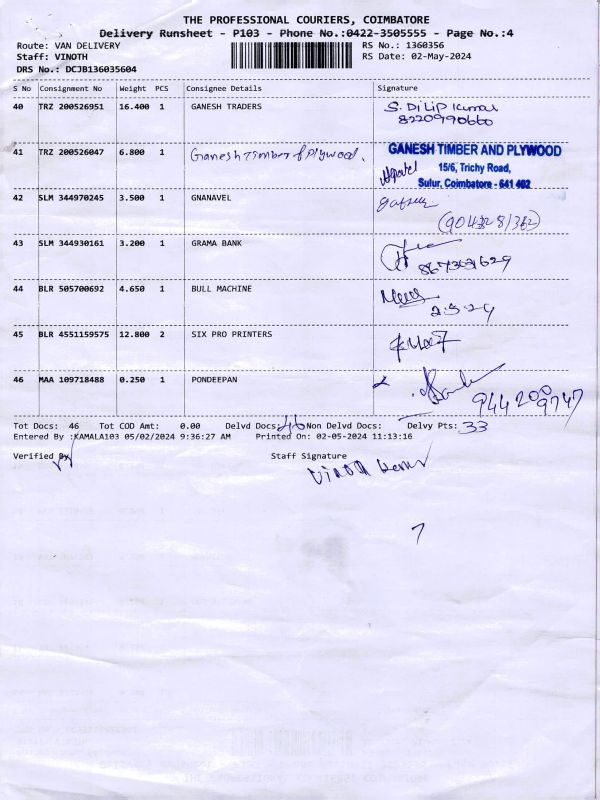 THE PROFESSIONAL COURIERS, COIMBATORE
Delivery Runsheet - P103 - Phone No.:0422-3505555 - Page No.:4
Route: VAN DELIVERY RS No.: 1360356
Staff: VINOTH RS Date: 02-May-2024
DRS No.: DCJB136035604
S No Consignment No Weight PCS Consignee Details Signature
40 TRZ 200526951 16.400 1 GANESH TRADERS S. Dilip Kumar
8220990660
41 TRZ 200526047 6.800 1 Ganesh Timber & Plywood. GANESH TIMBER AND PLYWOOD
15/6, Trichy Road,
Sulur, Coimbatore - 641 402
42 SLM 344970245 3.500 1 GNANAVEL
43 SLM 344930161 3.200 1 GRAMA BANK
44 BLR 505700692 4.650 1 BULL MACHINE
2.5.24
45 BLR 4551159575 12.800 2 SIX PRO PRINTERS
46 MAA 109718488 0.250 1 PONDEEPAN
944 200
9747
Tot Docs: 46 Tot COD Amt: 0.00 Delvd Docs: 46 Non Delvd Docs: Delvy Pts: 33
Entered By :KAMALA103 05/02/2024 9:36:27 AM Printed On: 02-05-2024 11:13:16
Verified By Staff Signature
Vinoth Kumar
7